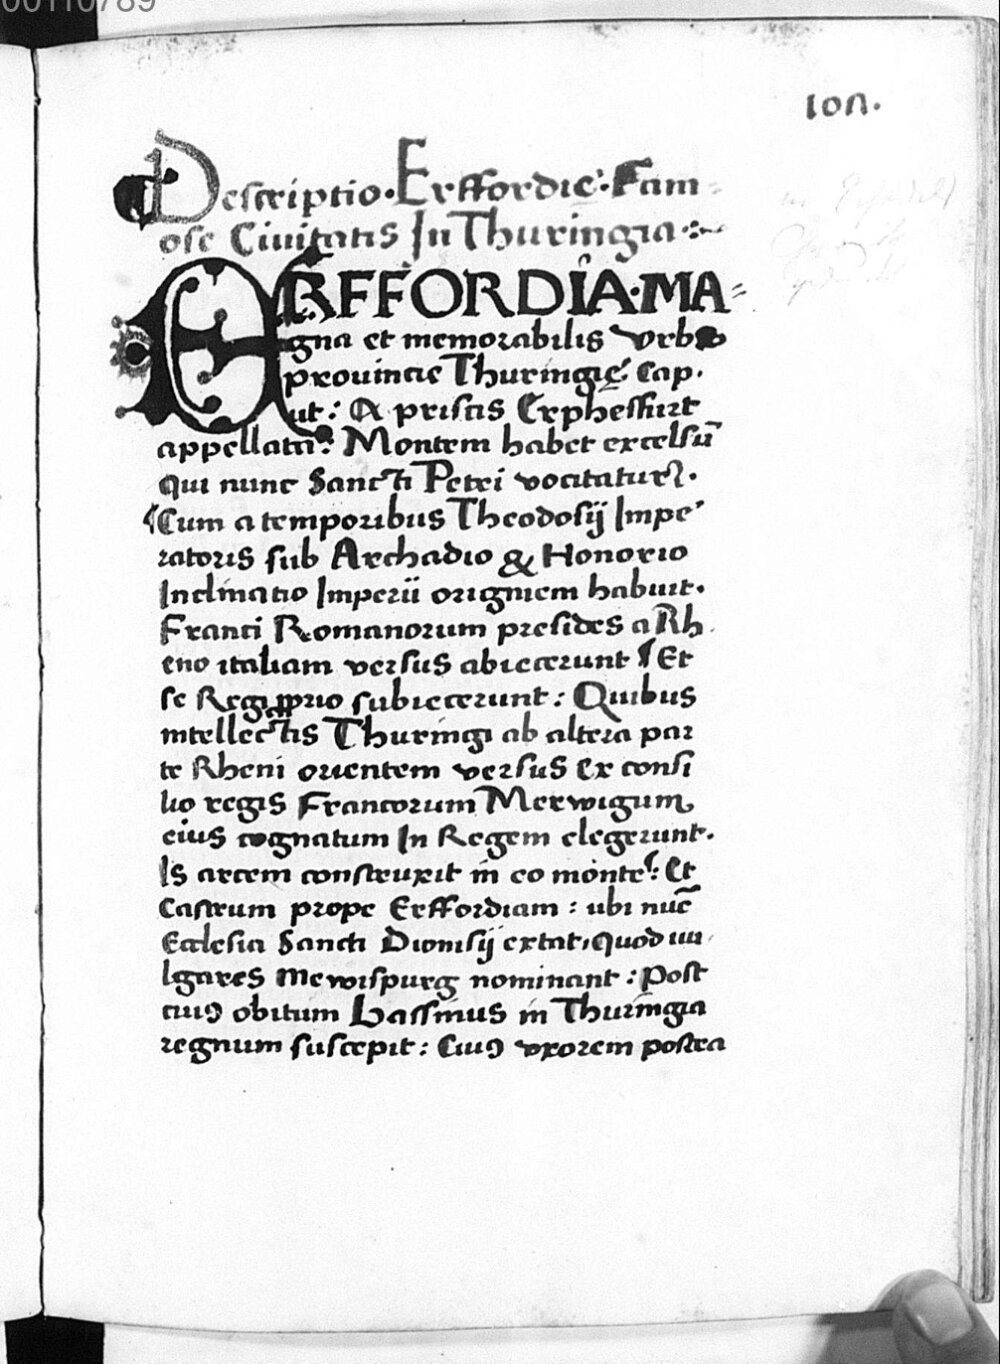 00110789
107.
Descriptio · Erffordię · Fam=
ose Ciuitatis In Thuringia :~
ERFFORDIA · MA=
gna et memorabilis vrbs
prouincie Thuringię : Cap.
ut : A priscis Erphesfurt
appellata : Montem habet excelsū
Qui nunc Sancti Petri vocitatur.
Cum a temporibus Theodosij Impe
ratoris sub Archadio & Honorio
Inclinatio Imperii originem habuit.
Franci Romanorum presides a Rh
eno italiam versus abiecerunt Et
se Regi proprio subiecerunt : Quibus
intellectis Thuringi ab altera par
te Rheni orientem versus Ex consi
lio regis Francorum Merwigum
eius cognatum In Regem elegerunt.
Is arcem construxit in eo monte : Et
Castrum prope Erffordiam : ubi nūc
Ecclesia Sancti Dionisij extat, Quod uu
lgares Mewispurg nominant : Post
cuiꝰ obitum Bassinus in Thuringia
regnum suscepit : Cuiꝰ vxorem postea